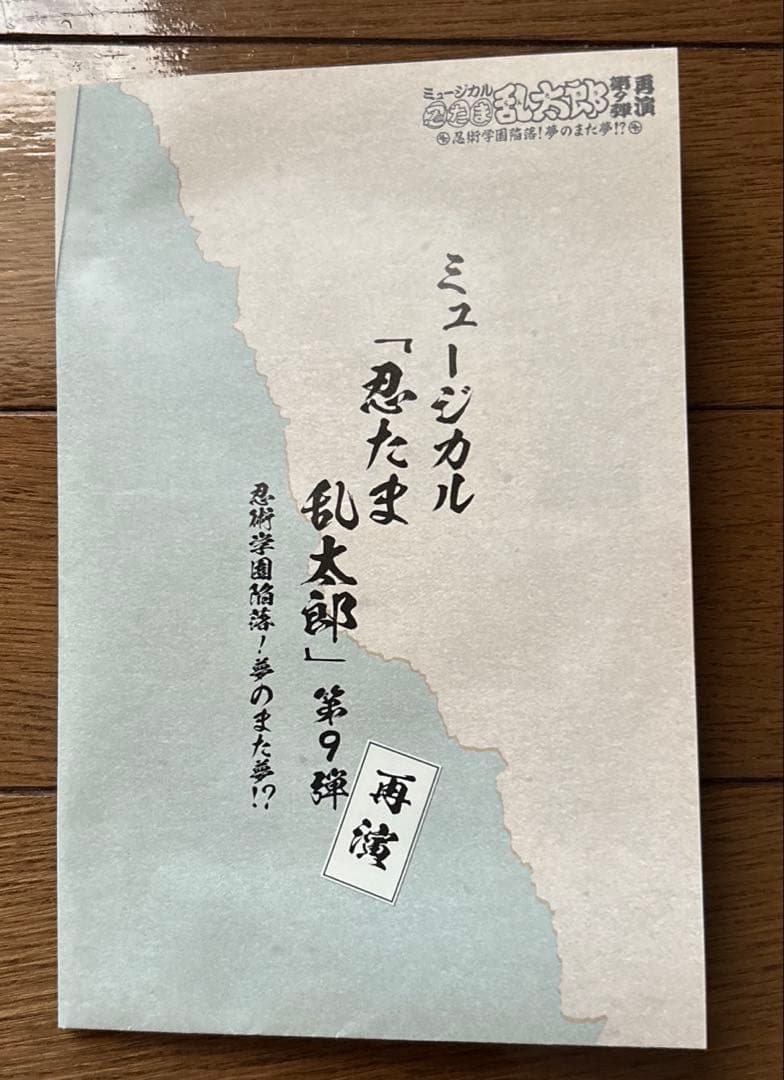 ミュージカル
忍たま乱太郎
第9弾
再演
忍術学園陥落!夢のまた夢!?
ミュージカル
「忍たま
乱太郎」第9弾
再演
忍術学園陥落!夢のまた夢!?